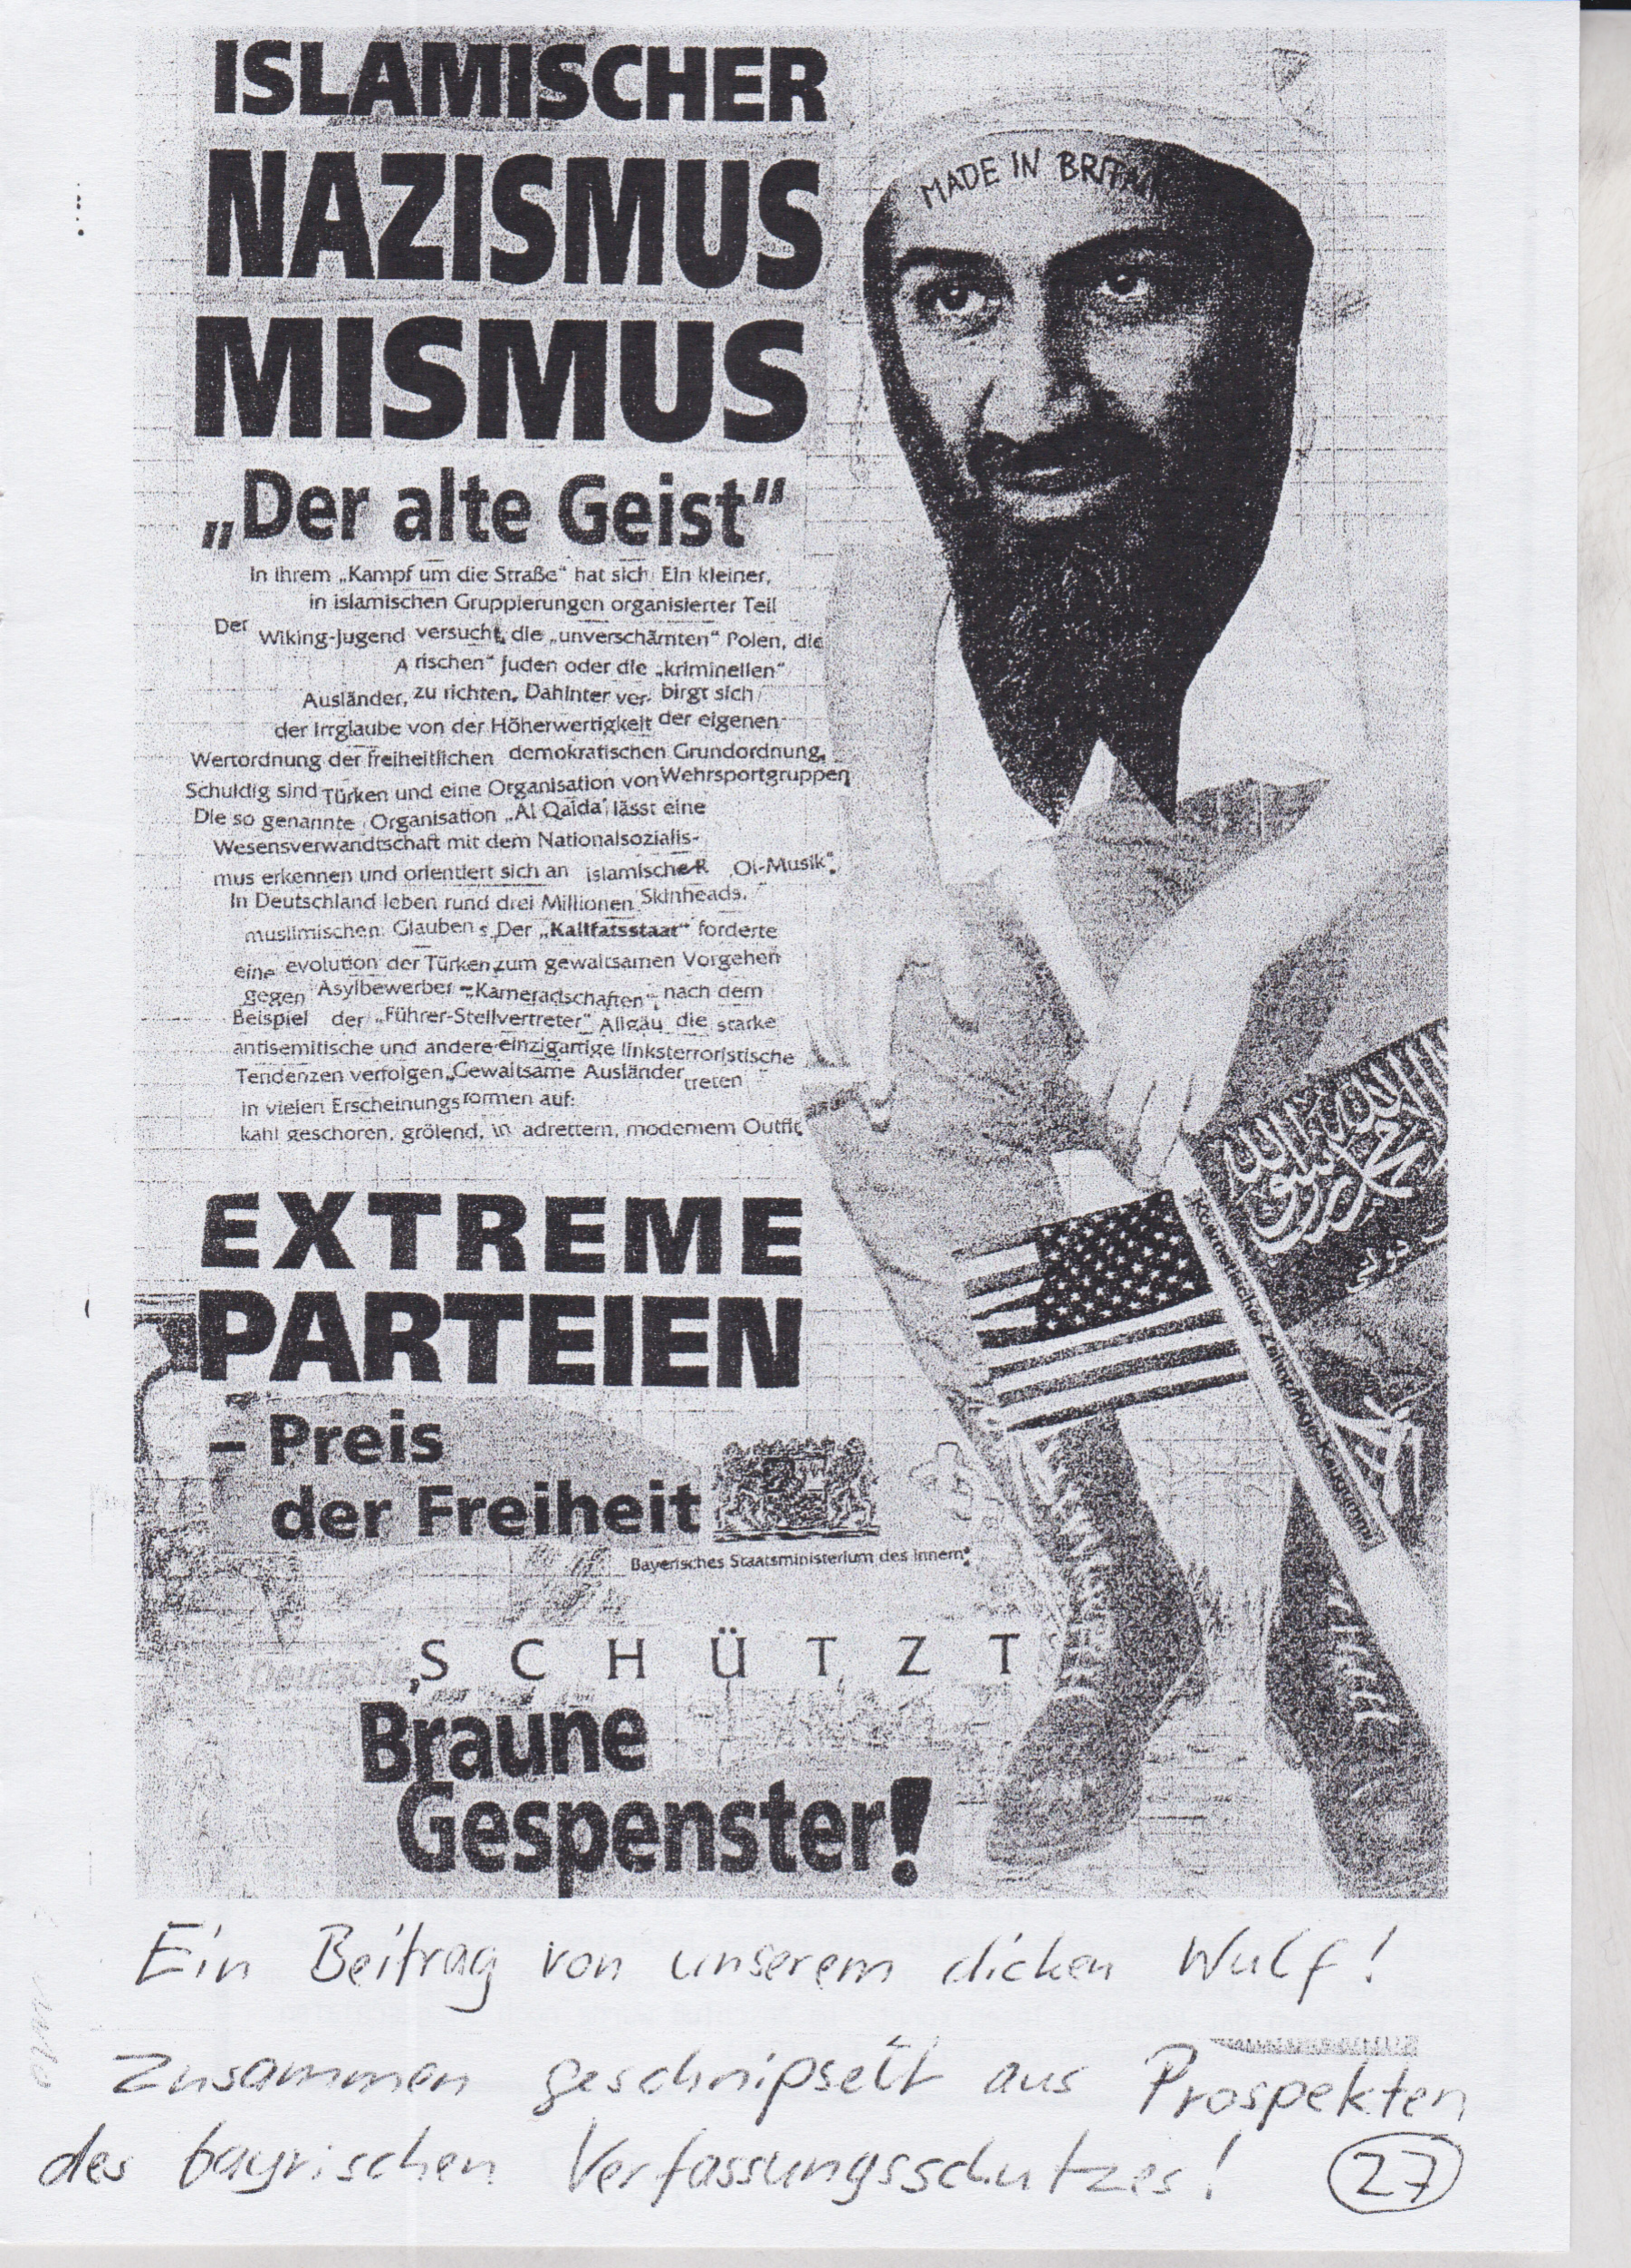 ISLAMISCHER
NAZISMUS
MISMUS
„Der alte Geist“
In ihrem „Kampf um die Straße“ hat sich Ein kleiner,
in islamischen Gruppierungen organisierter Teil
Der Wiking-Jugend versucht, die „unverschämten“ Polen, die
A rischen“ Juden oder die „kriminellen“
Ausländer, zu richten, Dahinter ver. birgt sich
der Irrglaube von der Höherwertigkeit der eigenen
Wertordnung der freiheitlichen demokratischen Grundordnung,
Schuldig sind Türken und eine Organisation von Wehrsportgruppen
Die so genannte Organisation „Al Qaida“ lässt eine
Wesensverwandtschaft mit dem Nationalsozialis-
mus erkennen und orientiert sich an islamischeR „Oi-Musik“.
In Deutschland leben rund drei Millionen Skinheads.
muslimischen Glauben s. Der „Kalifatsstaat“ forderte
eine evolution der Türken zum gewaltsamen Vorgehen
gegen Asylbewerber – „Kameradschaften“, nach dem
Beispiel der „Führer-Stellvertreter“ Allgäu die starke
antisemitische und andere einzigartige linksterroristische
Tendenzen verfolgen „Gewaltsame Ausländer treten
in vielen Erscheinungs formen auf:
kahl geschoren, grölend, in adrettem, modernem Outfit
EXTREME
PARTEIEN
– Preis
der Freiheit
Bayerisches Staatsministerium des Innern
Deutsche
SCHÜTZT
Braune
Gespenster!
MADE IN BRITAIN
لا إله إلا الله محمد رسول الله
Ein Beitrag von unserem dicken Wulf!
Zusammen geschnipselt aus Prospekten
des bayrischen Verfassungsschutzes!
27